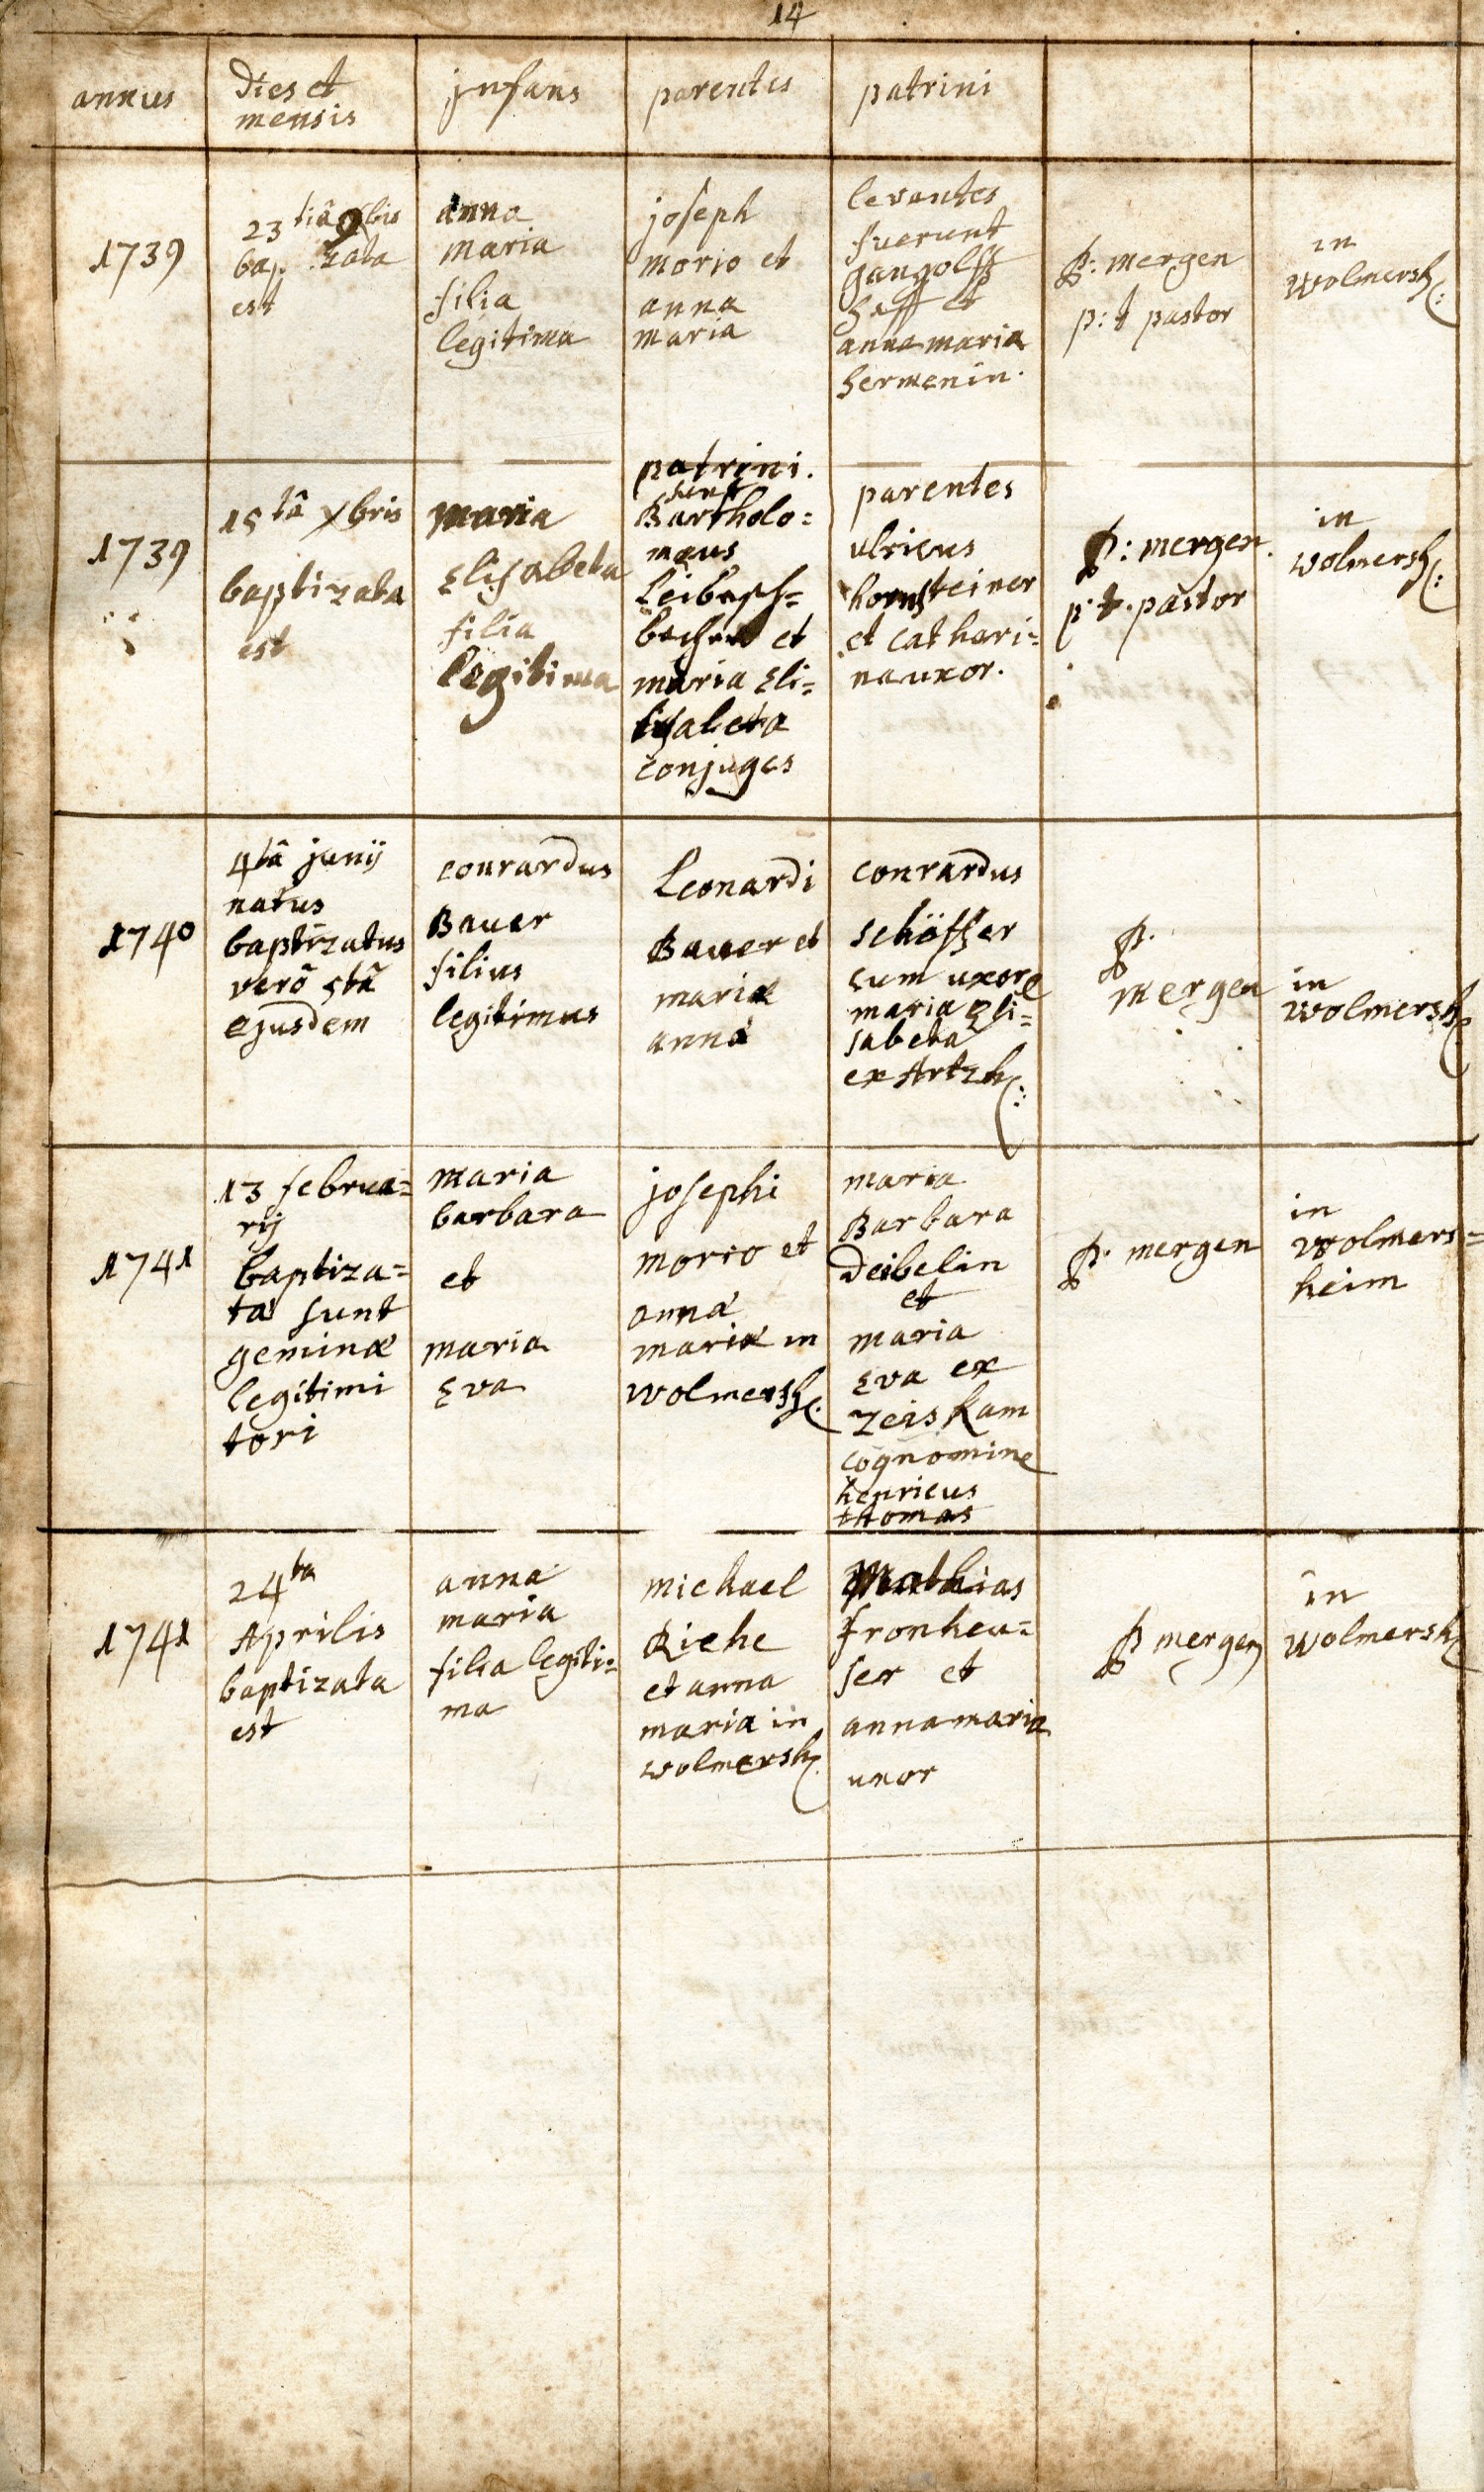 14
annus
Dies et
mensis
jnfans
parentes
patrini
1739
23 tiâ 9bris
bap. zata
est
anna
maria
filia
legitima
joseph
morio et
anna
maria
levantes
fuerunt
gangolff
Heff et
anna maria
Hermenin.
P: mergen
p: t pastor
in
Wolmersh:
1739
15 tâ xbris
baptizata
est
maria
Elisabeta
filia
legitima
patrini.
sunt
Bartholo=
mæus
et
maria Eli=
sabeta
conjuges
parentes
ulricus
hornsteiner
et cathari=
na uxor.
P: mergen.
p. t. pastor
in
wolmersh:
1740
4tâ junij
natus
baptizatus
verò 5tâ
ejusdem
conrardus
Bauer
filius
legitimus
Leonardi
Bauer et
mariæ
annæ
conrardus
schöffer
cum uxore
maria Eli=
sabeta
ex Artzh:
P.
mergen
in
wolmersh:
1741
13 februa=
rij
baptiza=
tæ sunt
geminæ
legitimi
tori
maria
barbara
et
maria
Eva
josephi
morio et
annæ
mariæ in
wolmersh.
maria
Barbara
Deibelin
et
maria
Eva ex
Zeiskam
cognomine
henricus
thomas
P. mergen
in
Wolmers=
heim
1741
24ta
Aprilis
baptizata
est
anna
maria
filia legiti=
ma
michael
Riehe
et anna
maria in
wolmersh.
Mathias
fronheu=
ser et
anna maria
uxor
P mergen
in
Wolmersh